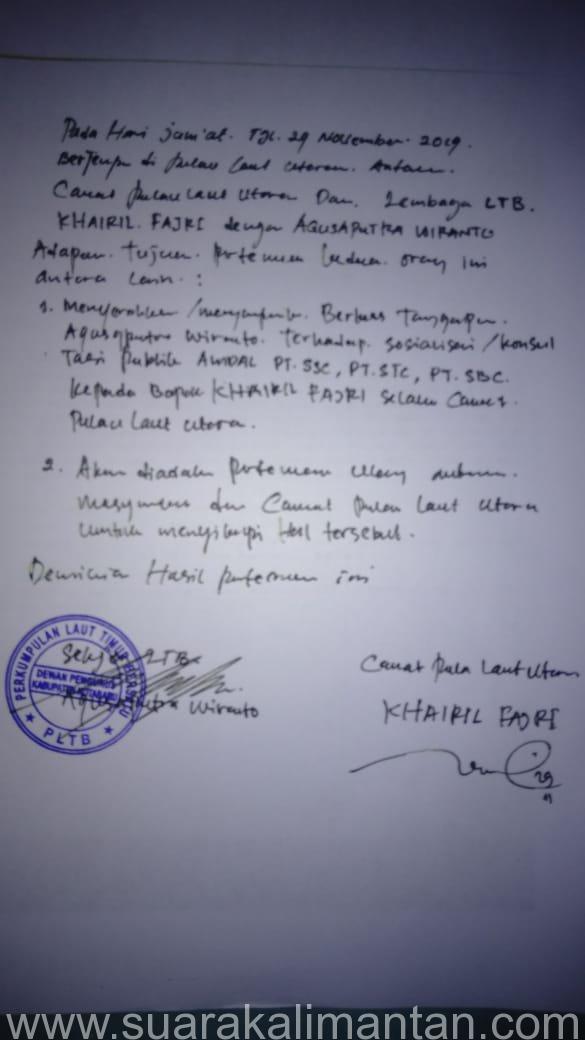 Pada Hari jum'at. TGL. 29 November. 2019.
Bertempat di pulau laut utara. Antara.
Camat pulau Laut Utara Dan. Lembaga LTB.
KHAIRIL. FAJRI dengan AGUSAPUTRA WIRANTO
Adapun. tujuan. pertemuan kedua. orang ini
antara lain. :
1. Menyerahkan / menyampaikan. Berkas Tanggapan.
Agusaputra Wiranto. terhadap. sosialisasi / konsul
Tasi publik AMDAL PT. SSC, PT. STC, PT. SBC.
kepada Bapak KHAIRIL FAJRI selaku Camat.
Pulau Laut Utara.
2. Akan diadakan pertemuan ulang antara.
masyarakat dan Camat Pulau Laut Utara
Untuk menyikapi Hal tersebut.
Demikian Hasil pertemuan ini
PERKUMPULAN LAUT TIMUR BERSATU
DEWAN PENGURUS
KABUPATEN KOTABARU
PLTB
Sekjen LTB
Agusaputra Wiranto
Camat Pula Laut Utara
KHAIRIL FAJRI
29
11
www.suarakalimantan.com